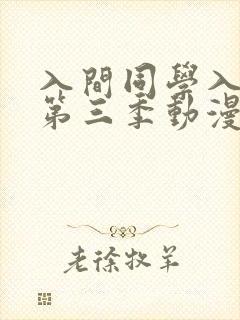 入間同學入
第三季動漫
老徐牧羊